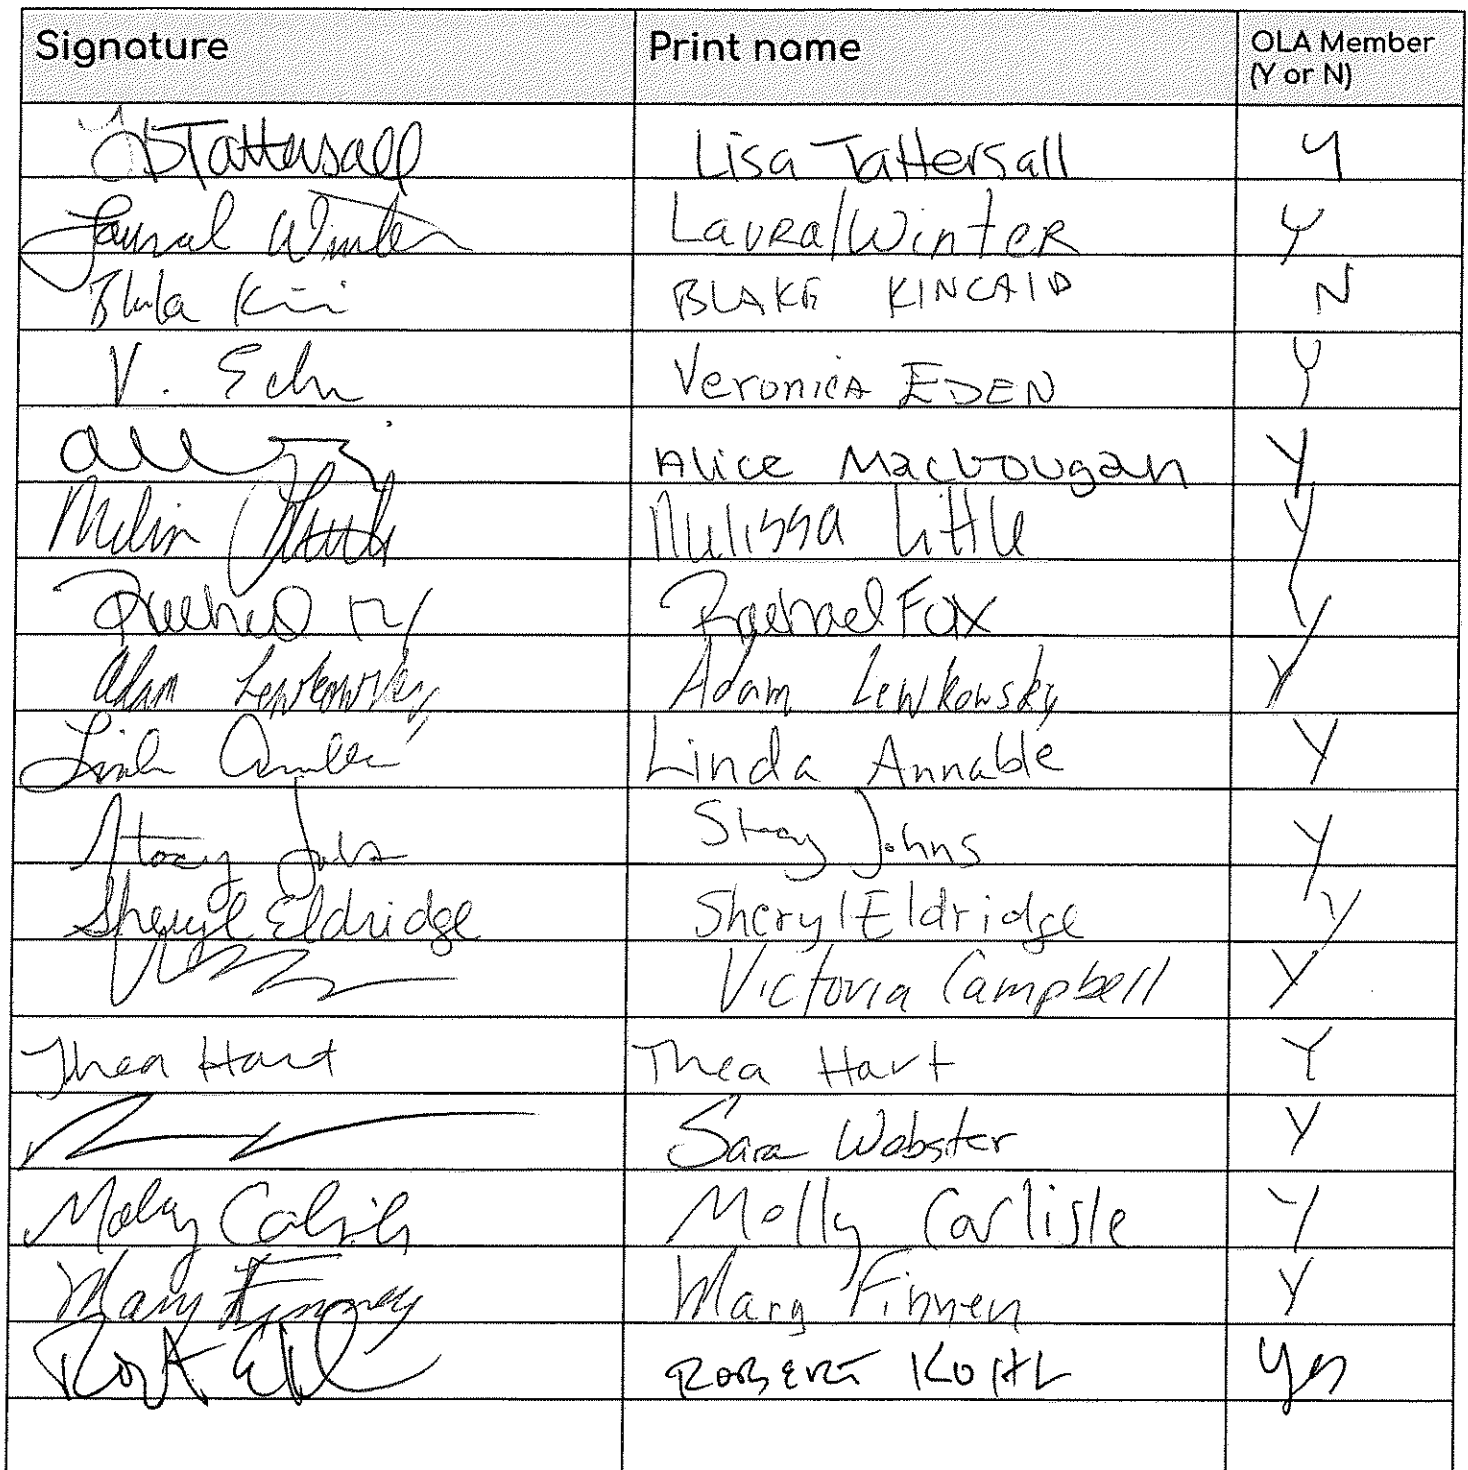 Signature Print name OLA Member
(Y or N)
Tattersall Lisa Tattersall Y
Laural Winter Laural Winter Y
BLAKE KINCAID N
V. Eden Veronica EDEN Y
Alice MacGougan Y
Melissa Little Melissa Little Y
Rachael Rachael Fox Y
Adam Lewkowsky Adam Lewkowsky Y
Linda Linda Annable Y
Stacy Johns Stacy Johns Y
Sheryl Eldridge Sheryl Eldridge Y
Victoria Campbell Y
Thea Hart Thea Hart Y
Sara Webster Y
Molly Molly Carlisle Y
Mary Finney Mary Y
ROBERT Yes